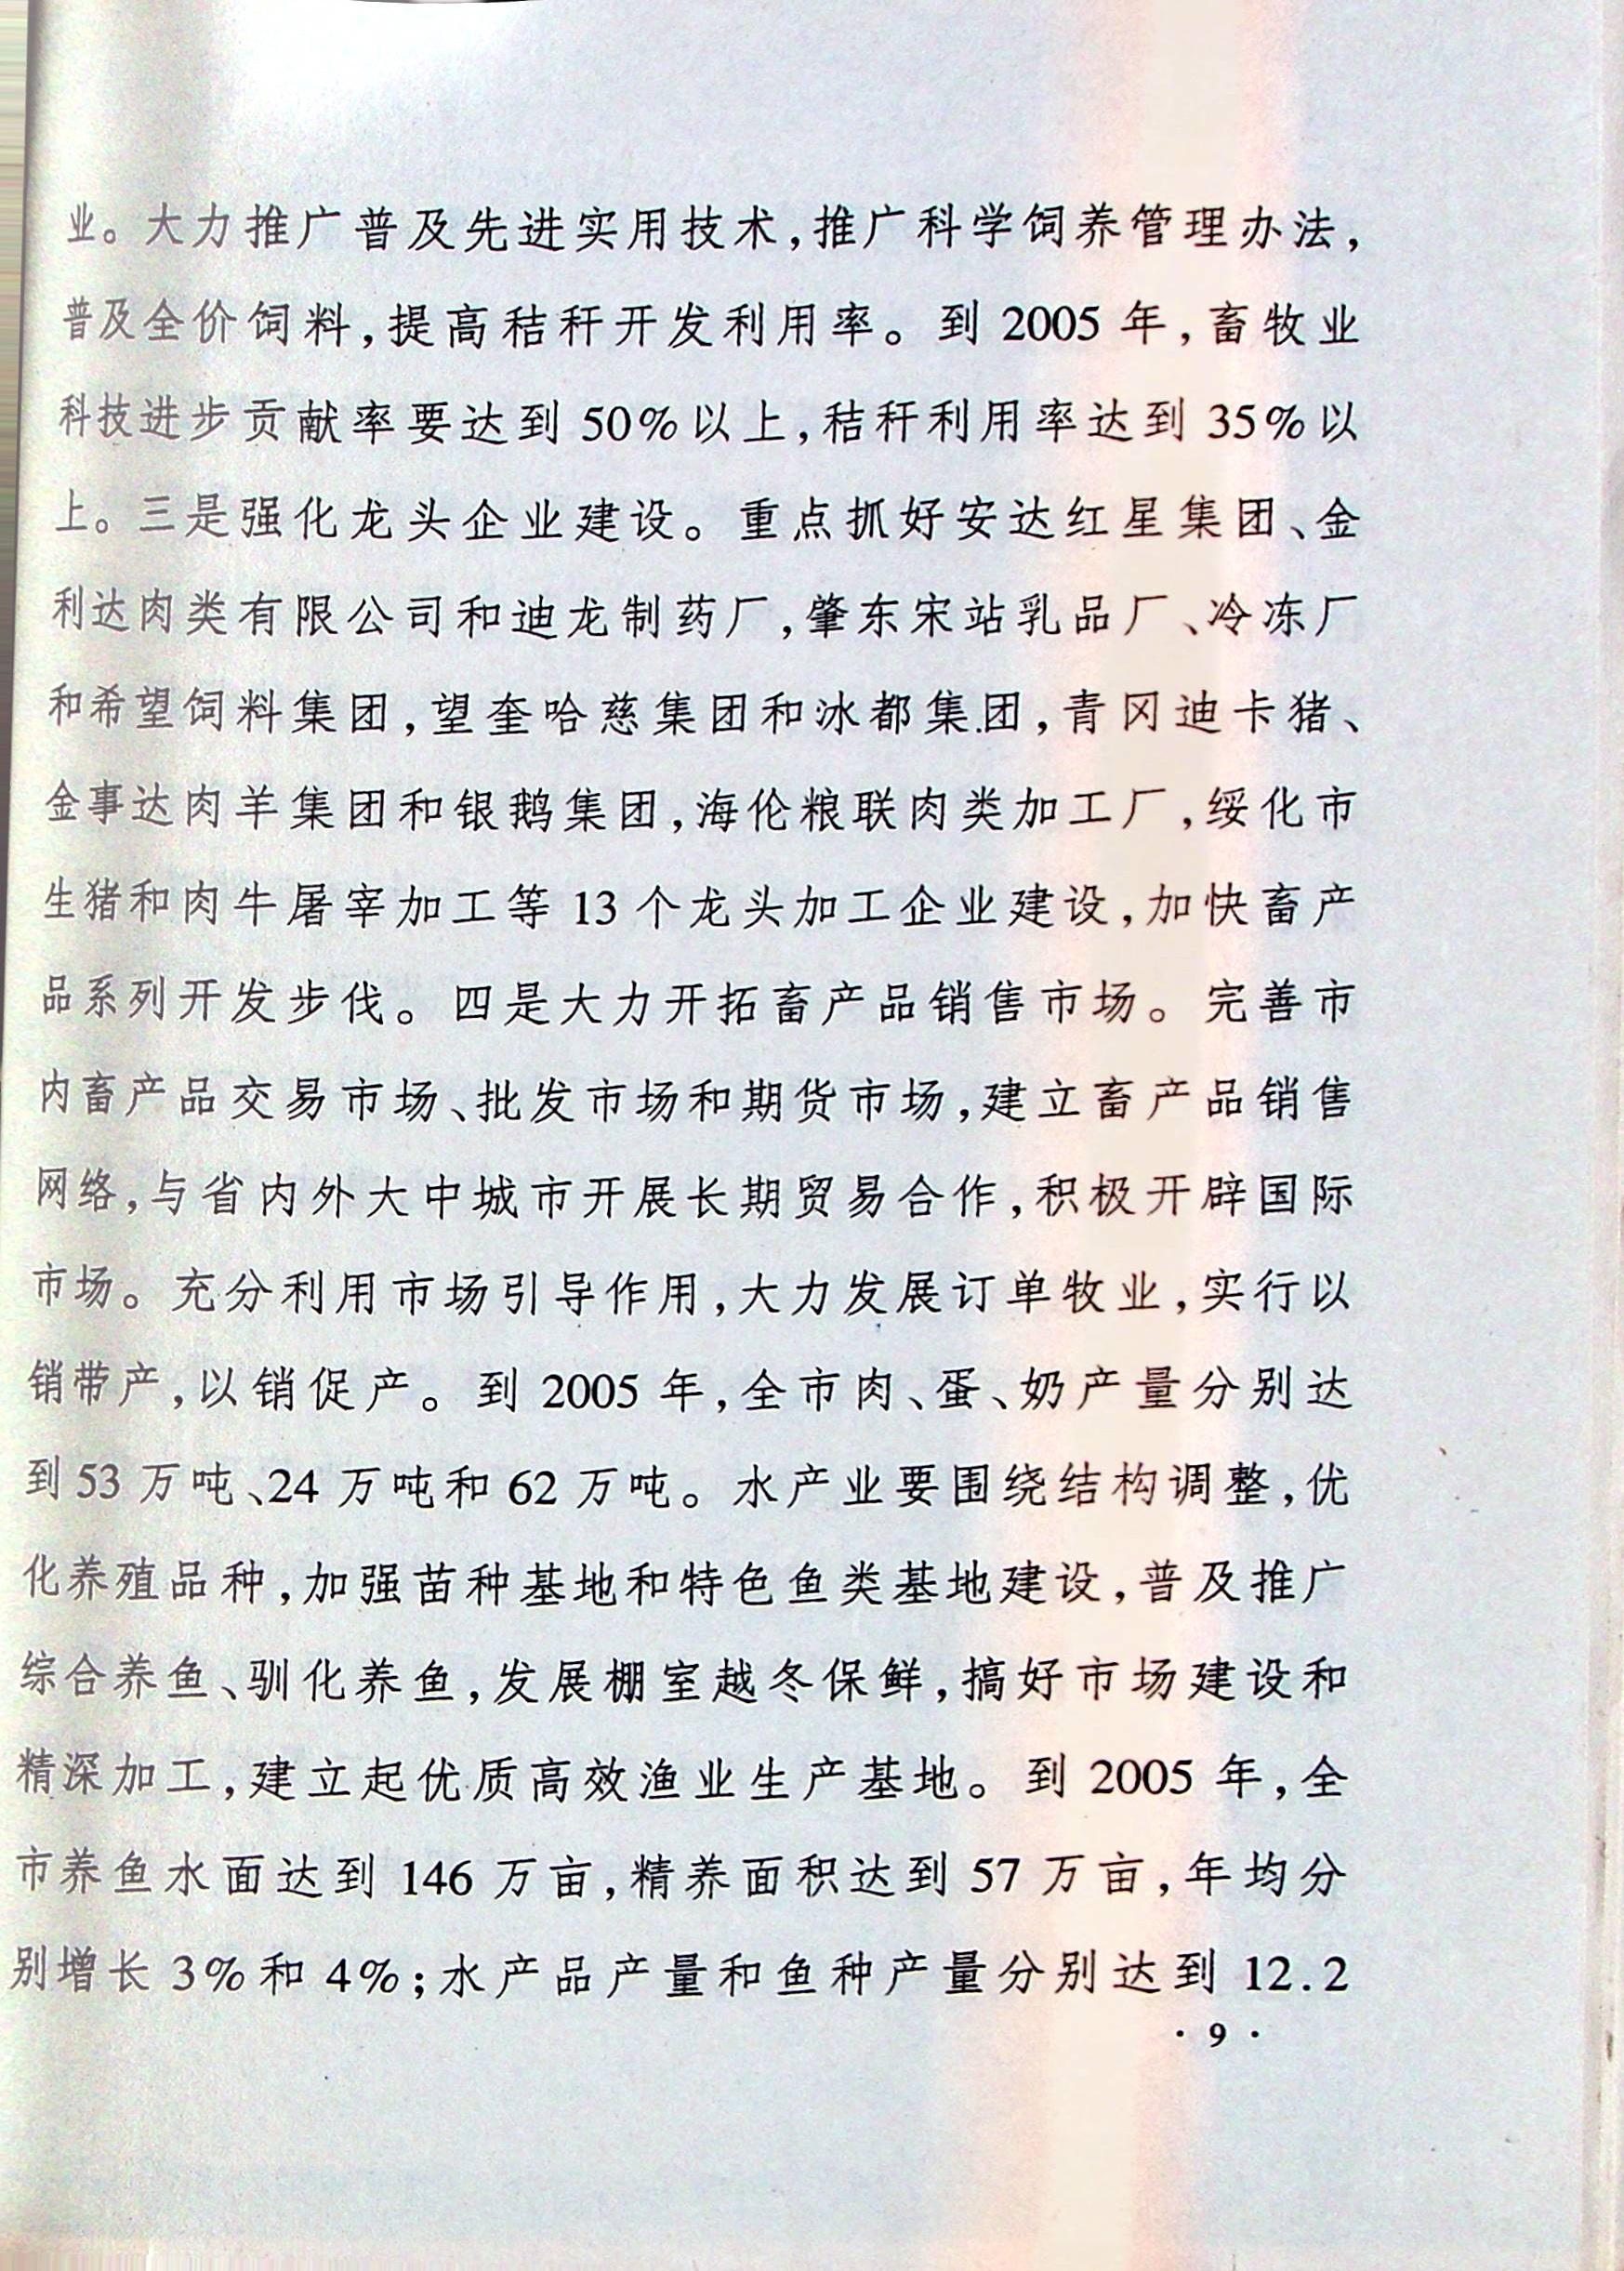 业。大力推广普及先进实用技术,推广科学饲养管理办法,
普及全价饲料,提高秸秆开发利用率。到 2005 年,畜牧业
科技进步贡献率要达到 50%以上,秸秆利用率达到 35%以
上。三是强化龙头企业建设。重点抓好安达红星集团、金
利达肉类有限公司和迪龙制药厂,肇东宋站乳品厂、冷冻厂
和希望饲料集团,望奎哈慈集团和冰都集团,青冈迪卡猪、
金事达肉羊集团和银鹅集团,海伦粮联肉类加工厂,绥化市
生猪和肉牛屠宰加工等 13 个龙头加工企业建设,加快畜产
品系列开发步伐。四是大力开拓畜产品销售市场。完善市
内畜产品交易市场、批发市场和期货市场,建立畜产品销售
网络,与省内外大中城市开展长期贸易合作,积极开辟国际
市场。充分利用市场引导作用,大力发展订单牧业,实行以
销带产,以销促产。到 2005 年,全市肉、蛋、奶产量分别达
到 53 万吨、24 万吨和 62 万吨。水产业要围绕结构调整,优
化养殖品种,加强苗种基地和特色鱼类基地建设,普及推广
综合养鱼、驯化养鱼,发展棚室越冬保鲜,搞好市场建设和
精深加工,建立起优质高效渔业生产基地。到 2005 年,全
市养鱼水面达到 146 万亩,精养面积达到 57 万亩,年均分
别增长 3%和 4%;水产品产量和鱼种产量分别达到 12.2
· 9 ·